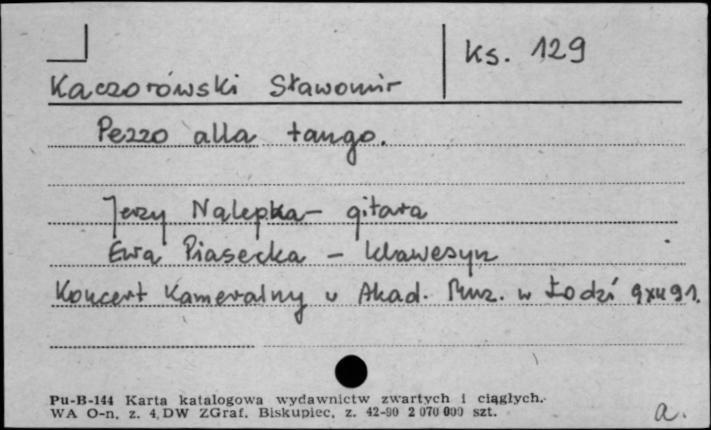 ks. 129
Kaczorowski Sławomir
Pezzo alla tango.
Jerzy Nalepka – gitara
Ewa Piasecka – klawesyn
Koncert Kameralny w Akad. Muz. w Łodzi 9 XII 91.
Pu-B-144 Karta katalogowa wydawnictw zwartych i ciągłych.
WA O-n. z. 4. DW ZGraf. Biskupiec, z. 42-90 2 070 000 szt.
a.